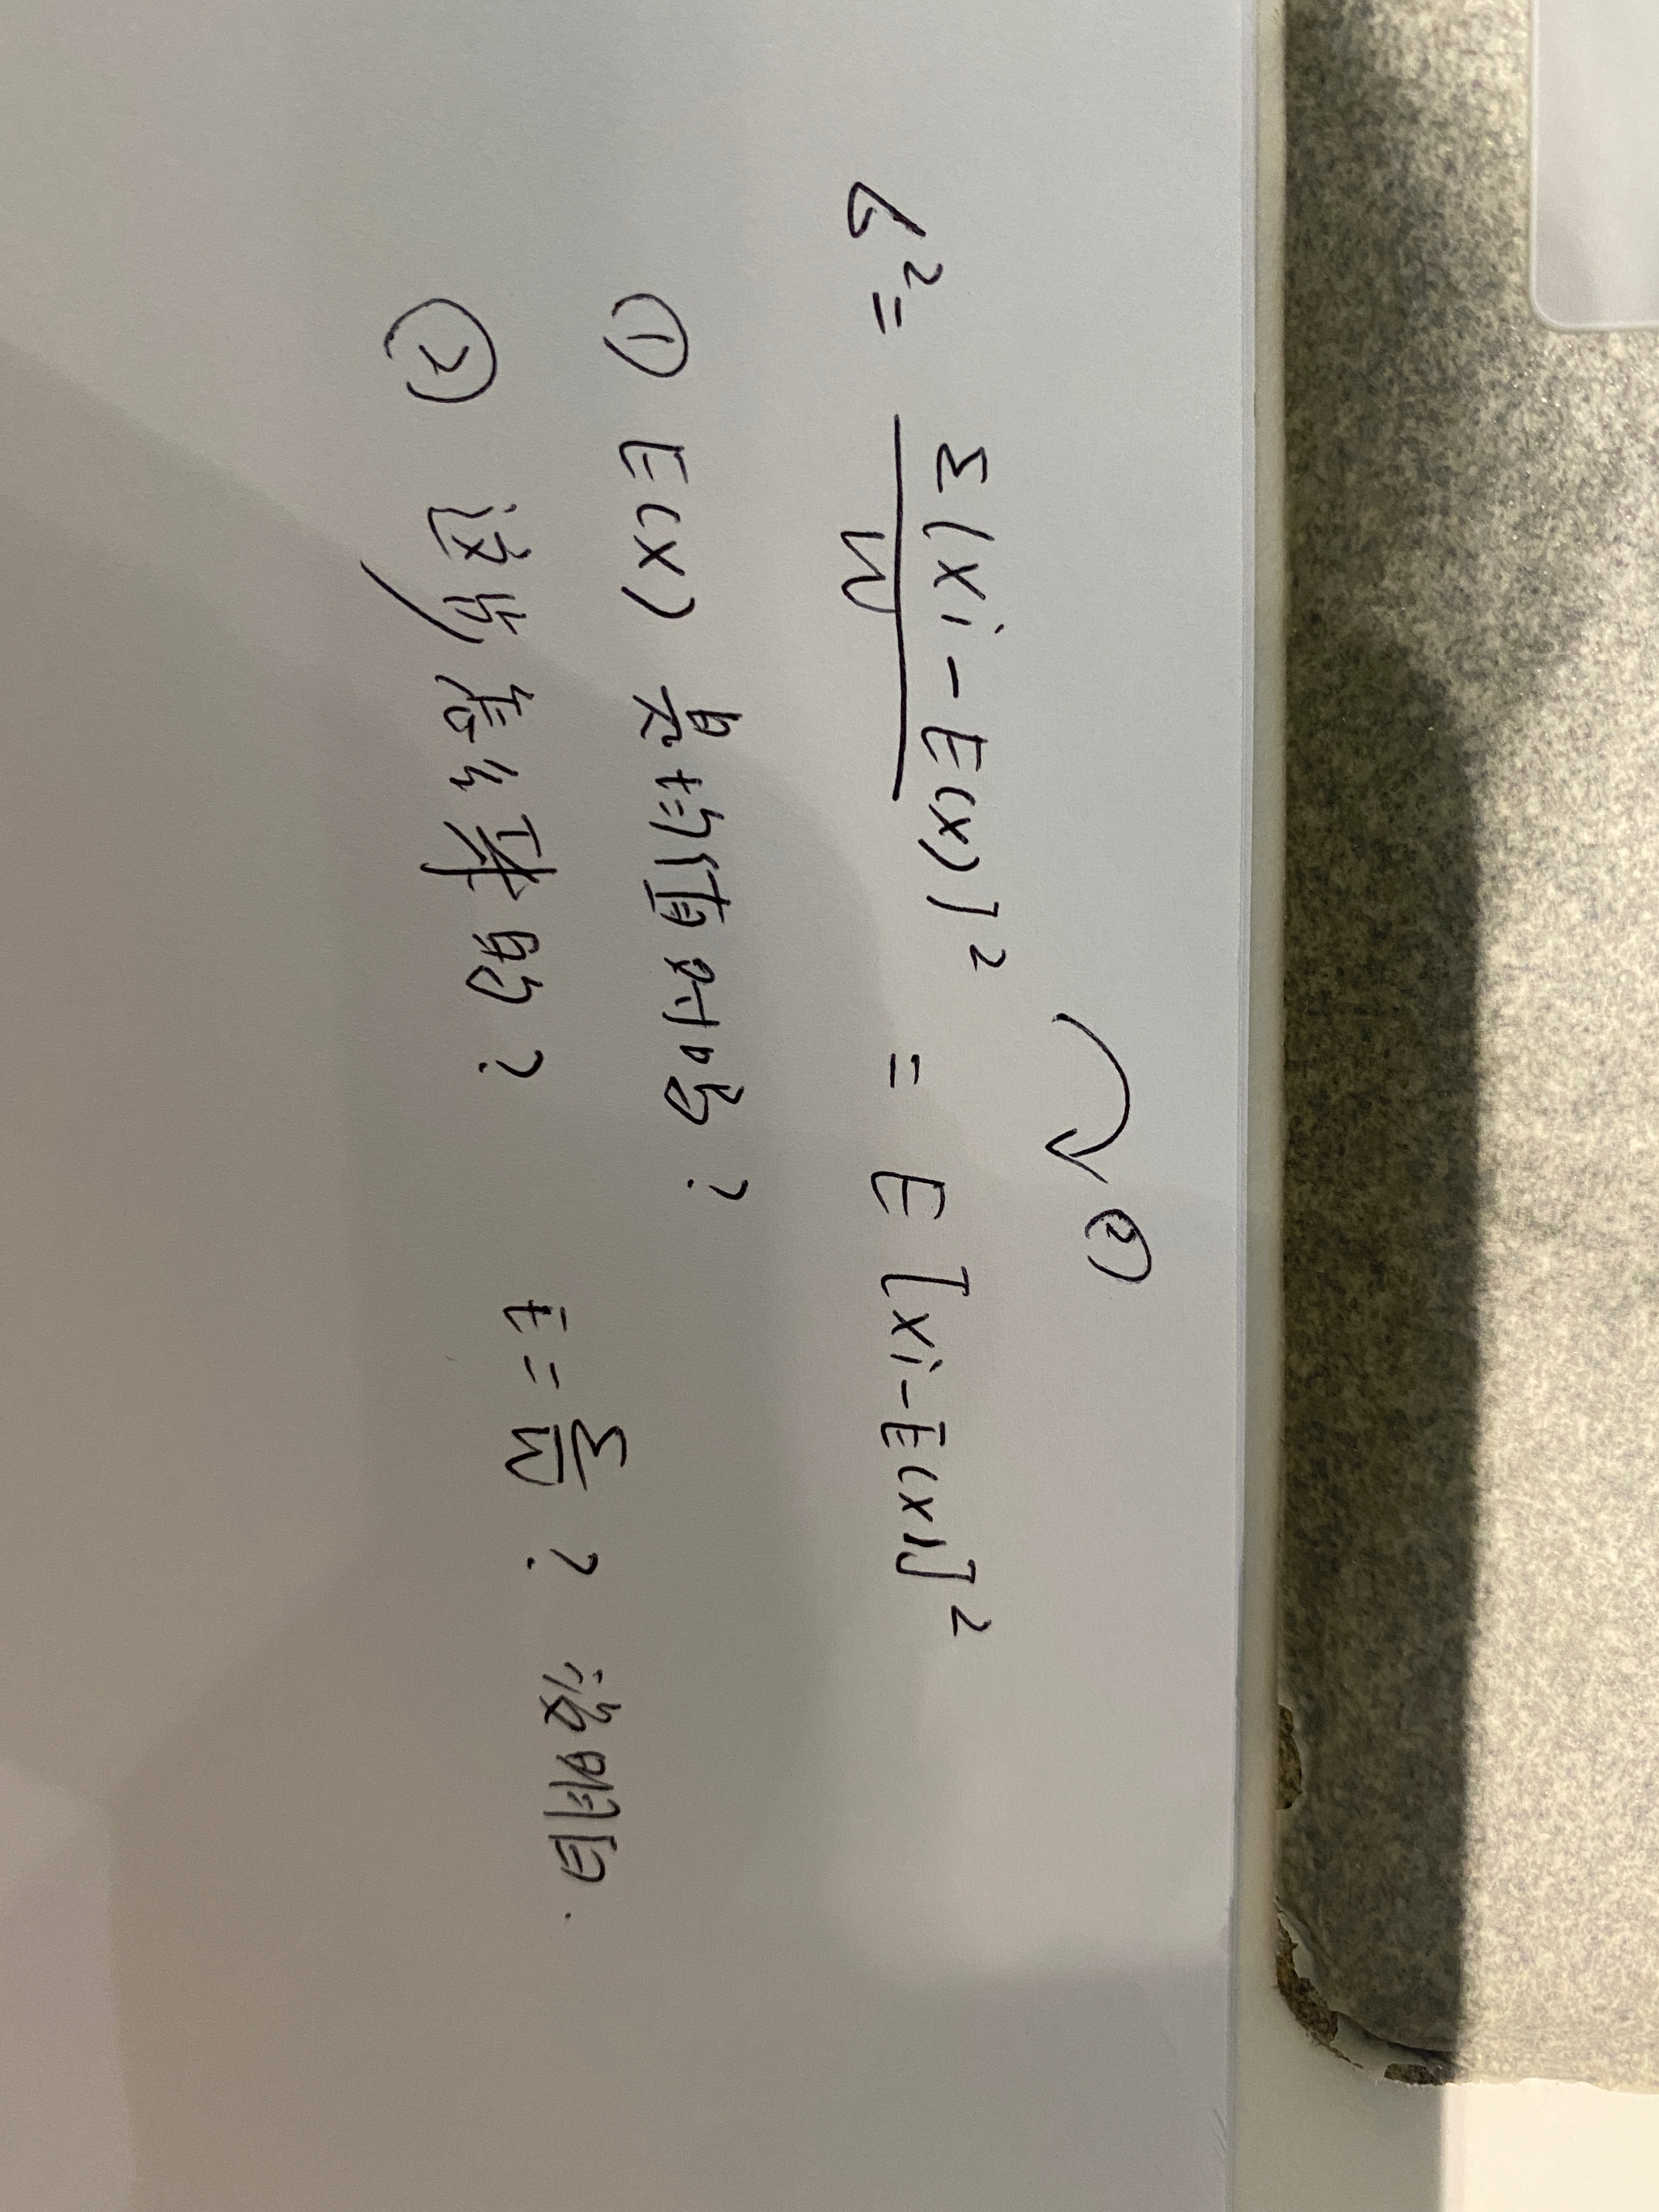 σ² = Σ[xi - E(x)]² / N = E[xi - E(x)]²
②
① E(x) 是均值吗?
② 这步怎么来的? E = Σ/N ?